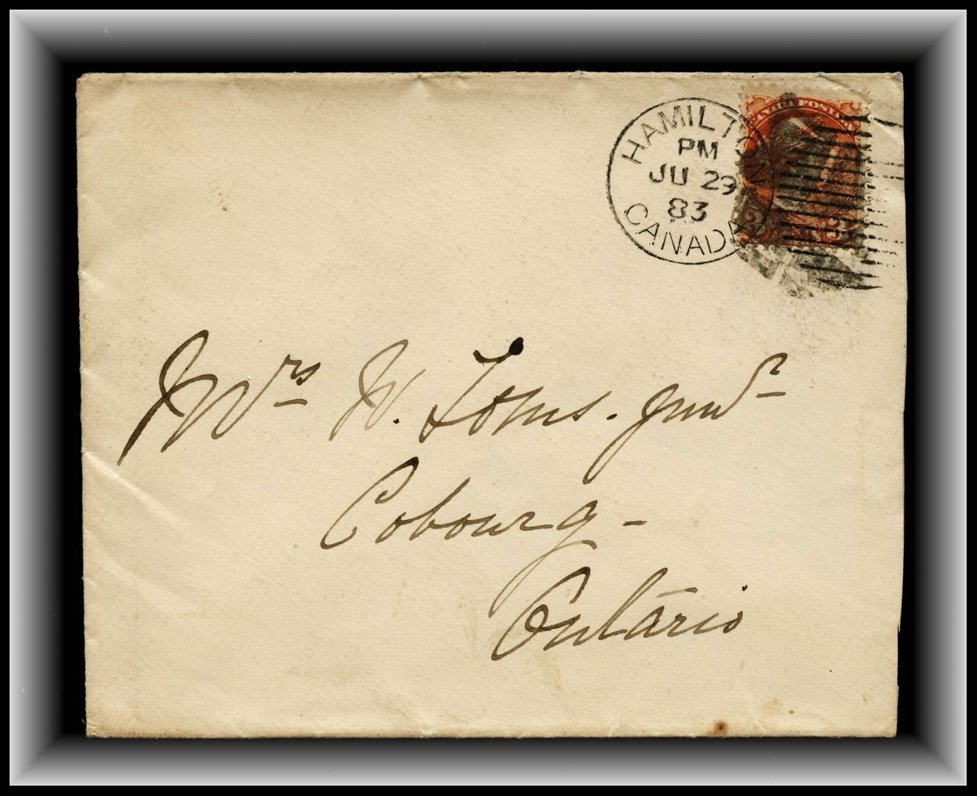 HAMILTON
PM
JU 29
83
CANADA
CANADA POSTAGE
3
Mrs W. . junr
Cobourg -
Ontario